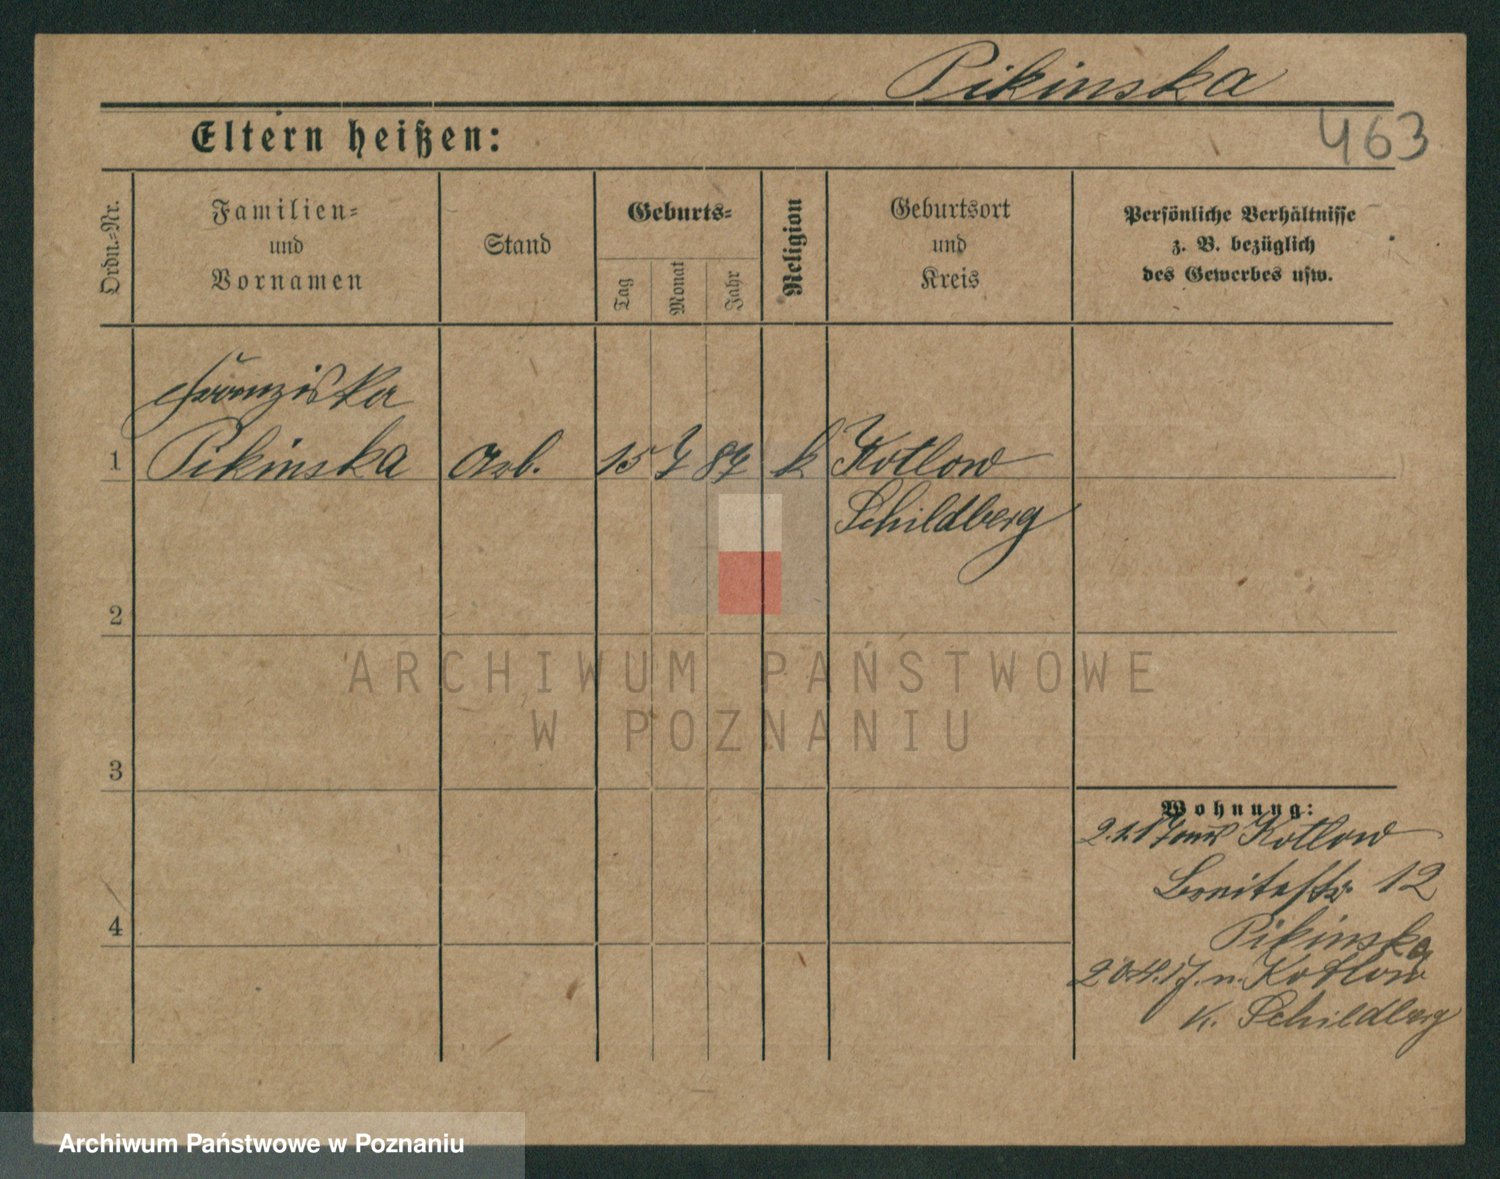 Pikinska
463
Eltern heißen:
Ordn.-Nr.
Familien-
und
Vornamen
Stand
Geburts-
Tag
Monat
Jahr
Religion
Geburtsort
und
Kreis
Persönliche Verhältnisse
z. B. bezüglich
des Gewerbes usw.
Franziska
1 Pikinska Arb. 15 k Kotlow
Schildberg
2
ARCHIWUM PAŃSTWOWE
W POZNANIU
3
Wohnung:
Kotlow
Breitestr. 12
Pikinska
Kotlow
K. Schildberg
4
Archiwum Państwowe w Poznaniu